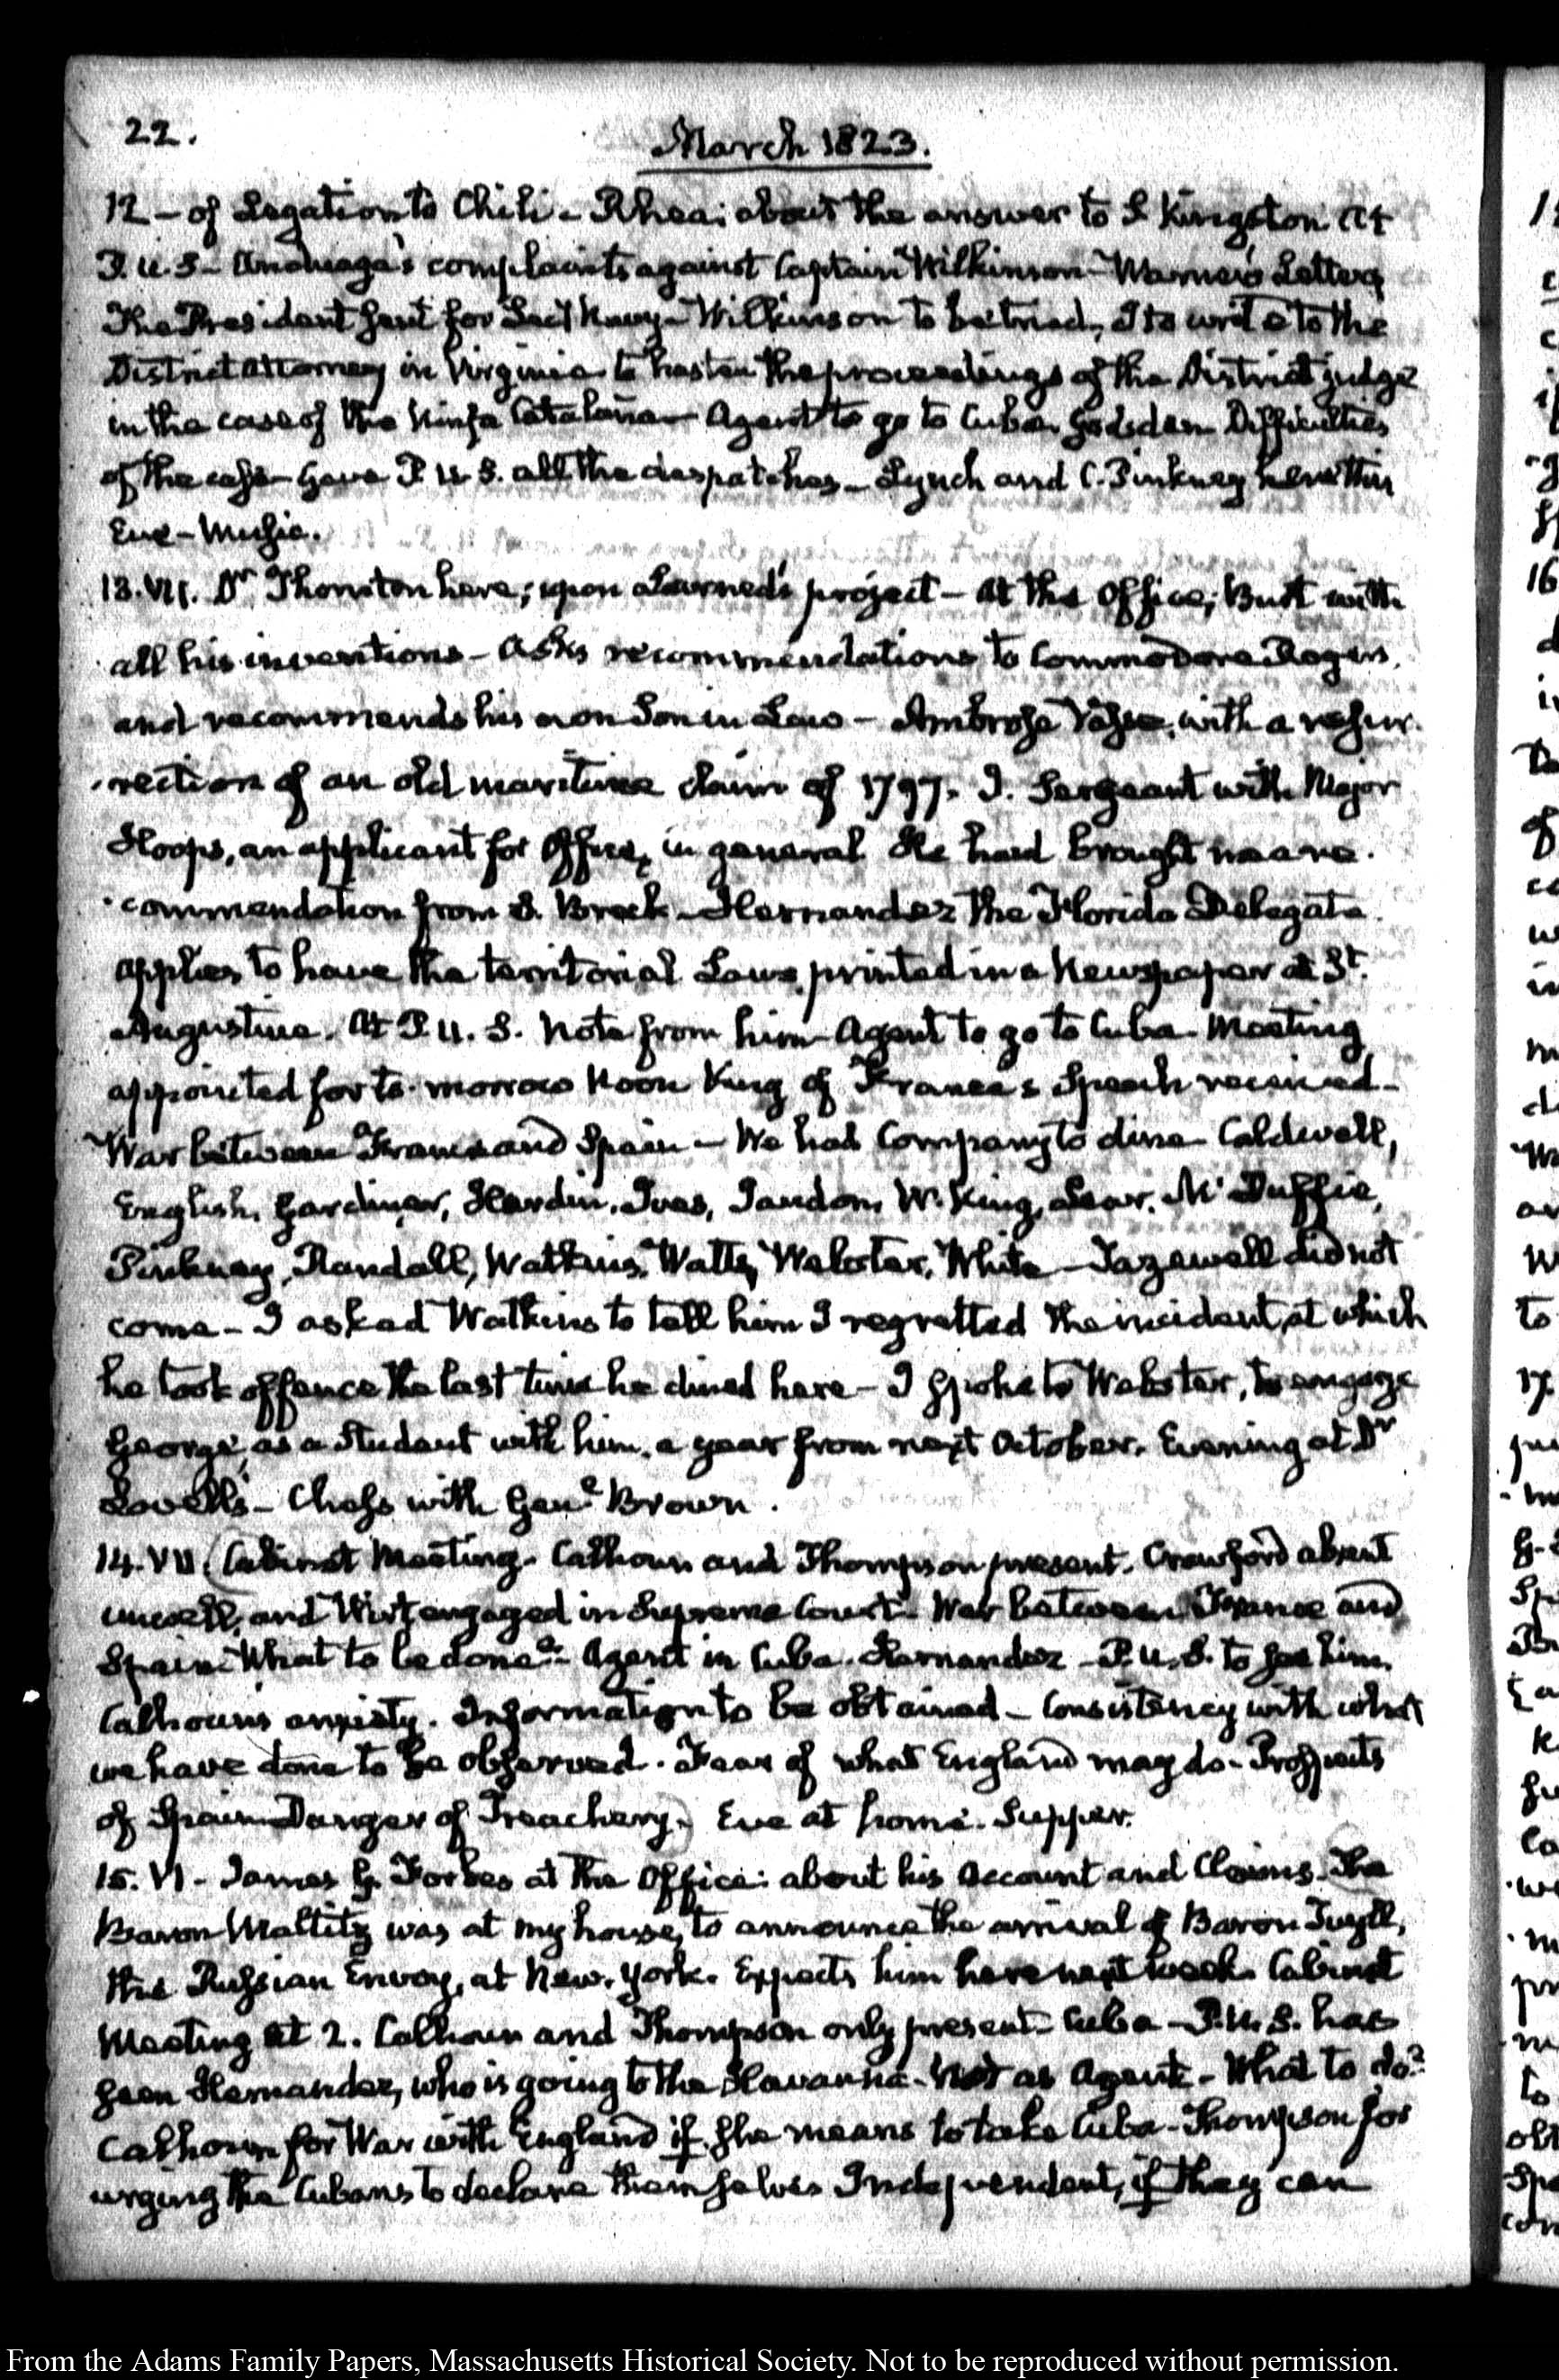 22.
March 1823.
12 — of Legation to Chili — Rhea: about the answer to S. Kingston. At
P.U.S — Anduaga's complaints against Captain Wilkinson — Warner's Letters
The President sent for Secy Navy — Wilkinson to be tried, I to write to the
District Attorney in Virginia to hasten the proceedings of the District judge
in the case of the Ninfa Catalana — Agent to go to Cuba. Gadsden Difficulties
of the case — Gave P.U.S. all the despatches — Lynch and C. Pinkney here this
Eve — Music.
13. VII. Dr Thornton here; upon Learned's project — At the Office; Burt with
all his inventions — Asks recommendations to Commodore Rogers,
and recommends his own Son in Law — Ambrose Vasse, with a resur-
-rection of an old maritime claim of 1797. J. Sergeant with Major
Hoops, an applicant for Office, in general He had brought me a re-
-commendation from S. Breck — Hernandez the Florida Delegate
applies to have the territorial Laws printed in a Newspaper at St.
Augustine. At P.U.S. Note from him — Agent to go to Cuba. Meeting
appointed for to-morrow Noon King of France's Speech received —
War between France and Spain — We had Company to dine — Caldwell,
English, Gardiner, Hardin, Ives, Jaudon, W. King, Lear, McDuffie,
Pinkney, Randall, Watkins, Watts, Webster, White — Tazewell did not
come — I asked Watkins to tell him I regretted the incident, at which
he took offence the last time he dined here — I spoke to Webster, to engage
George, as a Student with him, a year from next October. Evening at Dr
Lovell's — Chess with Genl Brown.
14. VII. (Cabinet Meeting. Calhoun and Thompson present. Crawford absent
unwell, and Wirt engaged in Supreme Court — War between France and
Spain — What to be done? — Agent in Cuba. Hernandez — P.U.S. to see him.
Calhoun's anxiety. Information to be obtained — Consistency with what
we have done to be observed. Fear of what England may do — Prospects
of Spain — Danger of Treachery.) Eve at home. Supper.
15. VI — James G. Forbes at the Office: about his Account and Claims — (The
Baron Maltitz was at my house, to announce the arrival of Baron Tuyll,
the Russian Envoy, at New-York. Expects him here next week. Cabinet
Meeting at 2. Calhoun and Thompson only present — Cuba — P.U.S. has
seen Hernandez, who is going to the Havanna — Not as Agent — What to do?
Calhoun for War with England if she means to take Cuba — Thompson for
urging the Cubans to declare themselves Independent, if they can
From the Adams Family Papers, Massachusetts Historical Society. Not to be reproduced without permission.